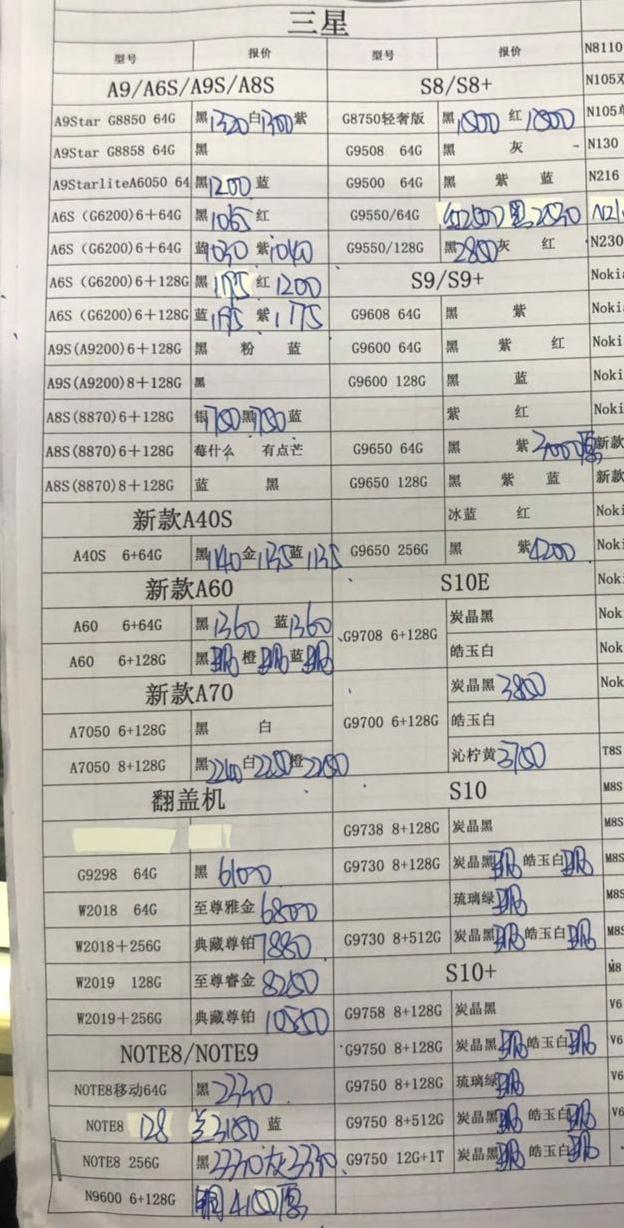 三星
型号 报价 型号 报价 N8110
A9/A6S/A9S/A8S S8/S8+ N105双
A9Star G8850 64G 黑1320白1300紫 G8750轻奢版 黑1800 红1800 N105单
A9Star G8858 64G 黑 G9508 64G 黑 灰 N130
A9StarliteA6050 64 黑1200蓝 G9500 64G 黑 紫 蓝 N216
A6S (G6200)6+64G 黑1065红 G9550/64G 黑 N21
A6S (G6200)6+64G 蓝1030紫1040 G9550/128G 黑2800灰 红 N230
A6S (G6200)6+128G 黑 红1200 S9/S9+ Noki
A6S (G6200)6+128G 蓝 紫1175 G9608 64G 黑 紫 Noki
A9S(A9200)6+128G 黑 粉 蓝 G9600 64G 黑 紫 红 Noki
A9S(A9200)8+128G 黑 G9600 128G 黑 蓝 Noki
A8S(8870)6+128G 银 黑 蓝 紫 红 Noki
A8S(8870)6+128G 莓什么 有点芒 G9650 64G 黑 紫 新款
A8S(8870)8+128G 蓝 黑 G9650 128G 黑 紫 蓝 新款
新款A40S 冰蓝 红 Noki
A40S 6+64G 黑1140金1135蓝1135 G9650 256G 黑 紫4200 Noki
新款A60 S10E Nok
A60 6+64G 黑1360 蓝1360 G9708 6+128G 炭晶黑 Nok
A60 6+128G 黑 橙 蓝 皓玉白 Nok
新款A70 炭晶黑3800 Nok
A7050 6+128G 黑 白 G9700 6+128G 皓玉白
A7050 8+128G 黑 白 橙 沁柠黄 T8S
翻盖机 S10 M8S
G9738 8+128G 炭晶黑 M8S
G9298 64G 黑6100 G9730 8+128G 炭晶黑 皓玉白 M8S
W2018 64G 至尊雅金6800 琉璃绿 M8S
W2018+256G 典藏尊铂7880 G9730 8+512G 炭晶黑 皓玉白 M8S
W2019 128G 至尊睿金 S10+ M8
W2019+256G 典藏尊铂 G9758 8+128G 炭晶黑 V6
NOTE8/NOTE9 G9750 8+128G 炭晶黑 皓玉白 V6
NOTE8移动64G 黑 G9750 8+128G 琉璃绿 V6
NOTE8 128 蓝 G9750 8+512G 炭晶黑 皓玉白 V6
NOTE8 256G 黑3330灰3330 G9750 12G+1T 炭晶黑 皓玉白
N9600 6+128G 铜4100